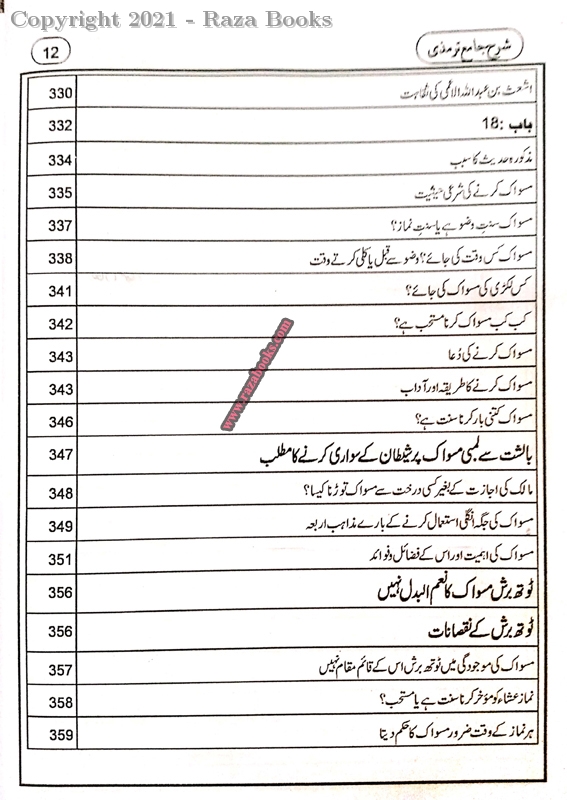 Copyright 2021 - Raza Books
شرح جامع ترمذی 12
اشعث بن عبداللہ الاعمی کی ثقاہت 330
باب :18 332
مذکورہ حدیث کا سبب 334
مسواک کرنے کی شرعی حیثیت 335
مسواک سنتِ وضو ہے یا سنتِ نماز؟ 337
مسواک کس وقت کی جائے؟ وضو سے قبل یا کلی کرتے وقت 338
کس لکڑی کی مسواک کی جائے؟ 341
کب کب مسواک کرنا مستحب ہے؟ 342
مسواک کرنے کی دُعا 343
مسواک کرنے کا طریقہ اور آداب 343
مسواک کتنی بار کرنا سنت ہے؟ 346
بالشت سے لمبی مسواک پر شیطان کے سواری کرنے کا مطلب 347
مالک کی اجازت کے بغیر کسی درخت سے مسواک توڑنا کیسا؟ 348
مسواک کی جگہ انگلی استعمال کرنے کے بارے مذاہب اربعہ 349
مسواک کی اہمیت اور اس کے فضائل و فوائد 351
ٹوتھ برش مسواک کا نعم البدل نہیں 356
ٹوتھ برش کے نقصانات 356
مسواک کی موجودگی میں ٹوتھ برش اس کے قائم مقام نہیں 357
نماز عشاء کو مؤخر کرنا سنت ہے یا مستحب؟ 358
ہر نماز کے وقت ضرور مسواک کا حکم دیتا 359
www.razabooks.com